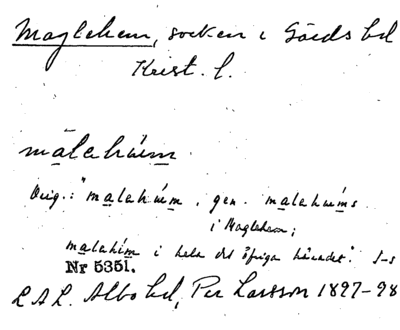 Maglehem, socken i Gärds hd
Krist. l.
malahúım
Orig.: "malahúım, gen. malahúıms
i Maglehem;
malahím i hela det öfriga häradet." I-s
Nr 5351.
LAL. Albo hd, Per Larsson 1897-98